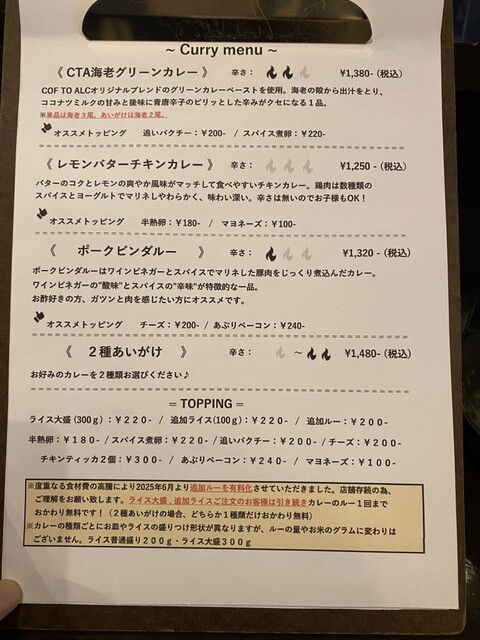 ~ Curry menu ~
《 CTA海老グリーンカレー 》 辛さ： ¥1,380-（税込）
COF TO ALCオリジナルブレンドのグリーンカレーペーストを使用。海老の殻から出汁をとり、
ココナツミルクの甘みと後味に青唐辛子のピリッとした辛みがクセになる１品。
※単品は海老３尾、あいがけは海老２尾。
オススメトッピング 追いパクチー：¥200- / スパイス煮卵：¥220-
《 レモンバターチキンカレー 》 辛さ： ¥1,250 -（税込）
バターのコクとレモンの爽やか風味がマッチして食べやすいチキンカレー。鶏肉は数種類の
スパイスとヨーグルトでマリネしやわらかく、味わい深い。辛さは無いのでお子様もOK！
オススメトッピング 半熟卵：¥180- / マヨネーズ：¥100-
《 ポークビンダルー 》 辛さ： ¥1,320 -（税込）
ポークビンダルーはワインビネガーとスパイスでマリネした豚肉をじっくり煮込んだカレー。
ワインビネガーの"酸味"とスパイスの"辛味"が特徴的な一品。
お酢好きの方、ガツンと肉を感じたい方にオススメです。
オススメトッピング チーズ：¥200- / あぶりベーコン：¥240-
《 ２種あいがけ 》 辛さ： ～ ¥1,480-（税込）
お好みのカレーを２種類お選びください♪
= TOPPING =
ライス大盛（300ｇ）：¥２２０- / 追加ライス（100ｇ）：¥２２０- / 追加ルー：¥２００-
半熟卵：¥１８０- / スパイス煮卵：¥２２０- / 追いパクチー：¥２００- / チーズ：¥２００-
チキンティッカ２個：¥３００- / あぶりベーコン：¥２４０- / マヨネーズ：¥１００-
※度重なる食材費の高騰により2025年6月より追加ルーを有料化させていただきました。店舗存続の為、
ご理解をお願い致します。ライス大盛、追加ライスご注文のお客様は引き続きカレーのルー１回まで
おかわり無料です！（２種あいがけの場合、どちらか１種類だけおかわり無料）
※カレーの種類ごとにお皿やライスの盛りつけ形状が異なりますが、ルーの量やお米のグラムに変わりは
ございません。ライス普通盛り２００ｇ・ライス大盛３００ｇ